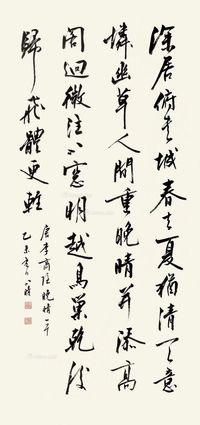 深居俯夾城春去夏猶清天意
憐幽草人間重晚晴并添高
閣迥微注小窗明越鳥巢乾後
歸飛體更輕
唐李商隐晚晴一首
乙未